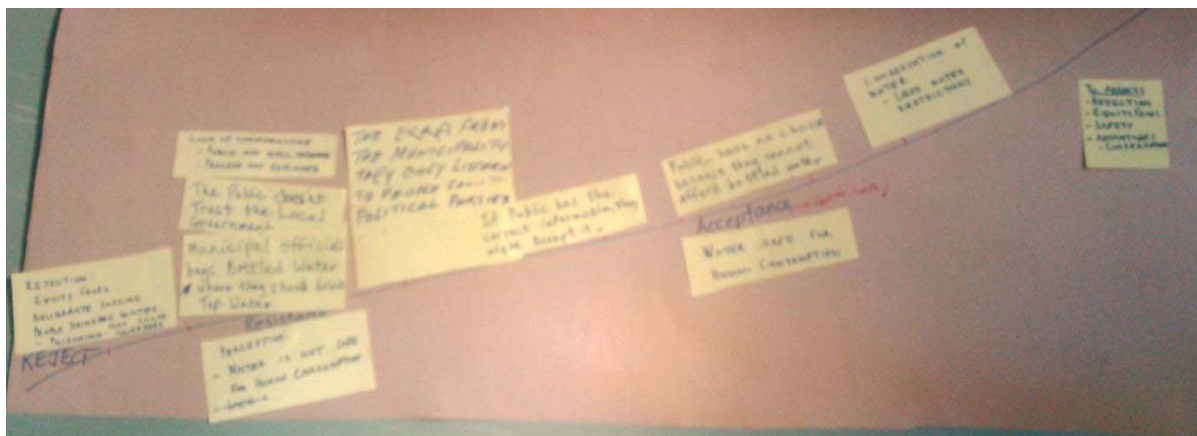 REJECTION:
EQUITY FEARS
DELIBERATE
PEOPLE DRINKING WATER
- POISONING
REJECT
LACK OF COMMUNICATION
- PUBLIC NOT WELL INFORMED
- PROCESS NOT EXPLAINED
The Public doesnt
Trust the Local
Government
Municipal officials
buys Bottled Water
where they should drink
Tap Water
Resistance
PERCEPTION:
- WATER IS NOT SAFE
FOR HUMAN CONSUMPTION
THE FROM
THE MUNICIPALITY
THEY ONLY LISTEN
TO PEOPLE FROM
POLITICAL PARTIES
If Public has the
correct information, they
might Accept it.
Public have no choice
because they cannot
afford bottled water
Acceptance
WATER SAFE FOR
HUMAN CONSUMPTION
CONSERVATION OF
WATER
- LESS WATER
RESTRICTIONS
To ADDRESS
- REJECTION
- EQUITY FEARS
- SAFETY
- ADVANTAGES
- CONSERVATION